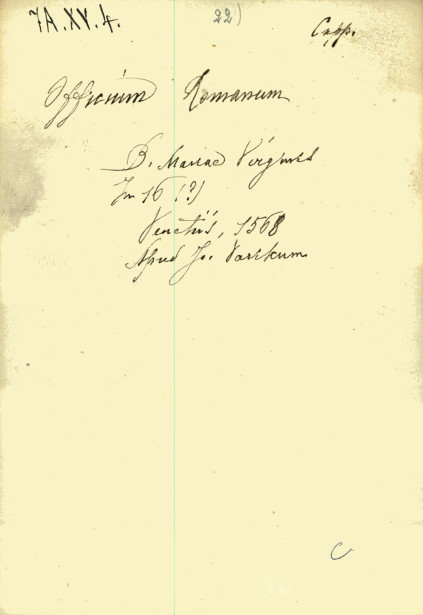 7A.XV.4. 22) Capp.
Officium Romanum
B. Mariae Virginis
In 16 (?)
Venetiis, 1568
Apud Jo. Variscum
C